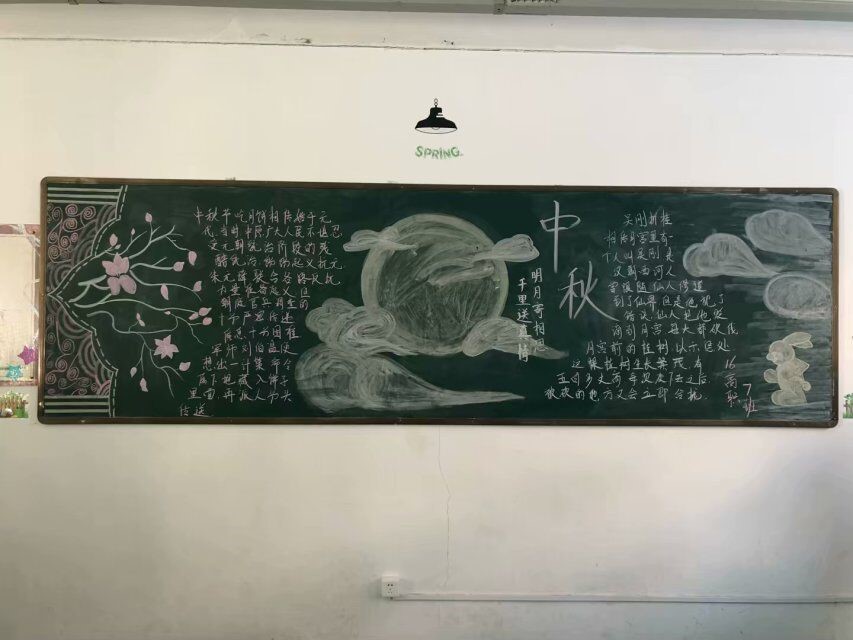 SPRING
中秋节吃月饼相传始于元
代,当时中原广大人民不堪忍
受元朝统治阶级的残
酷统治,纷纷起义抗元
朱元璋联合各路反抗
力量准备起义,但
朝庭官兵
十分严密传递
消息,十分困难
军师刘伯温便
想出一计策命令
属下把藏入饼子
里面,再派人分头
传送
明月寄相思
千里送真情
中
秋
吴刚折桂
相传月宫里有一
个人叫吴刚,是
汉朝西河人
曾跟随仙人修道
到了仙界,但是他犯了
错误,仙人把他贬
谪到月宫,每天都砍伐
月宫前的桂树,以示惩处
这棵桂树生长茂,有
五百多丈高,每次砍下去之后,
被砍的地方又会立即合拢
16
高
职
7
班